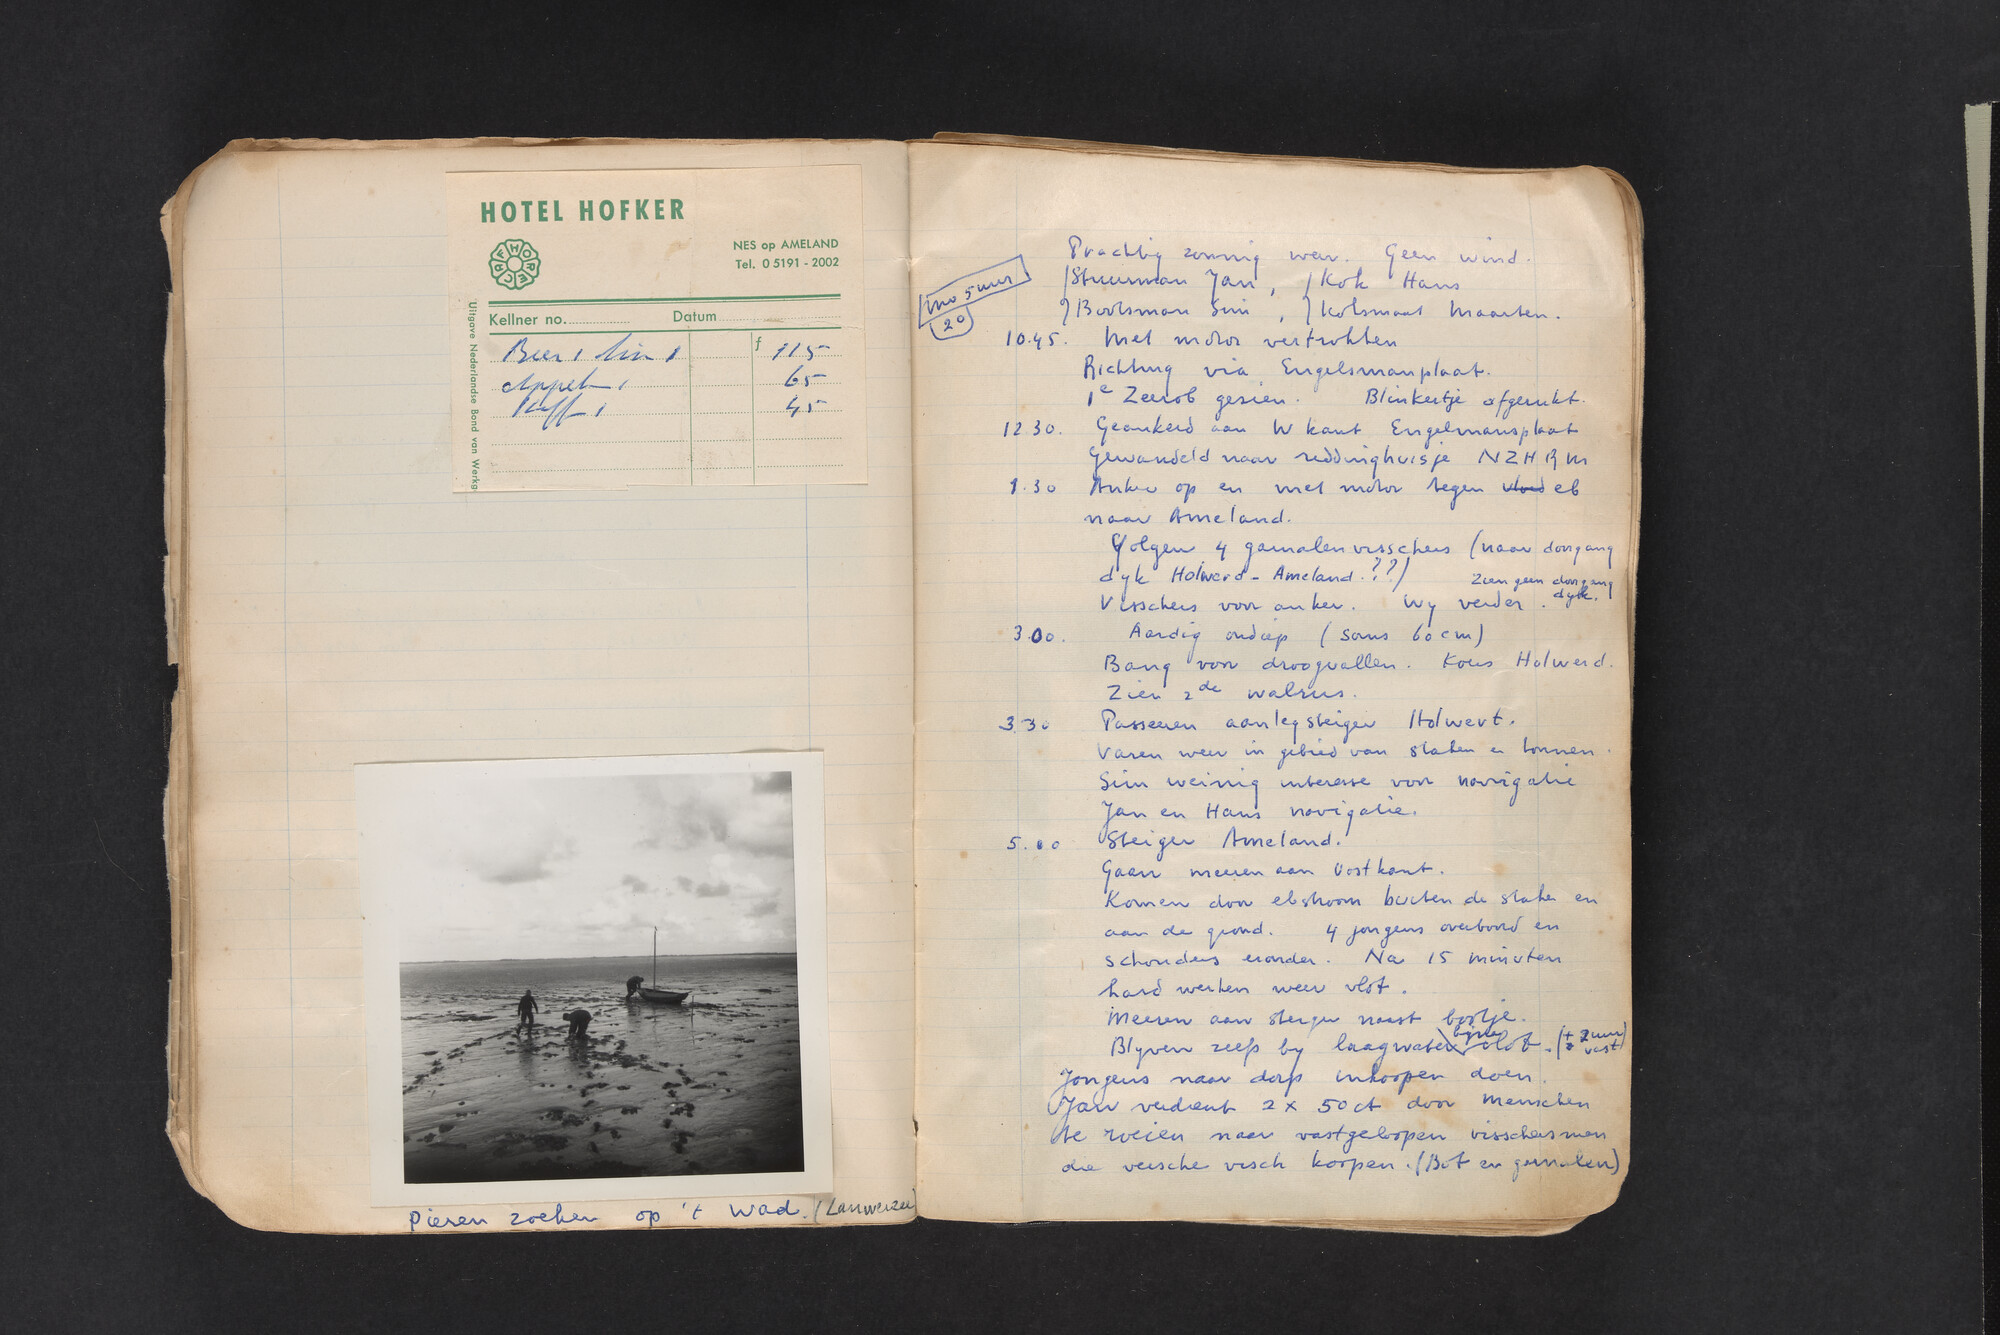 HOTEL HOFKER
HORECAF
NES op AMELAND
Tel. 0 5191 - 2002
Kellner no. Datum
Uitgave Nederlandse Bond van Werkg
Bier 1 f 115
Appel 1 65
Koff 1 45
Pieren zoeken op 't Wad. (Lauwerzee)
5 uur
20
Prachtig zonnig weer. Geen wind.
Stuurman Jan, Kok Hans
Bootsman Sim, Koksmaat Maarten.
10.45. Met motor vertrokken
Richting via Engelsmanplaat.
1e Zeerob gezien. Blinkertje afgerukt.
12.30. Geankerd aan W kant Engelmansplaat
Gewandeld naar reddinghuisje NZHRM
1.30 Anker op en met motor tegen vloed eb
naar Ameland.
Volgen 4 garnalenvisschers (naar doorgang
dyk Holwerd - Ameland.??) Zien geen doorgang
Visschers voor anker. Wy verder. dyk.
3.00. Aardig ondiep (soms 60 cm)
Bang voor droogvallen. Koers Holwerd.
Zien 2de walrus.
3.30 Passeren aanlegsteiger Holwert.
Varen weer in gebied van staken en tonnen.
Sim weinig interesse voor navigatie
Jan en Hans navigatie.
5.00 Steiger Ameland.
Gaan meeren aan Oostkant.
Komen door ebstroom buiten de staken en
aan de grond. 4 jongens overboord en
schouders eronder. Na 15 minuten
hard werken weer vlot.
Meeren aan steiger naast bootje.
Blyven zelfs by laagwater bijna vlot. (± 2 uur vast)
Jongens naar dorp inkoopen doen.
Jan verdient 2 x 50 ct door menschen
te roeien naar vastgeloopen visschersman
die versche visch koopen. (Bot en garnalen)